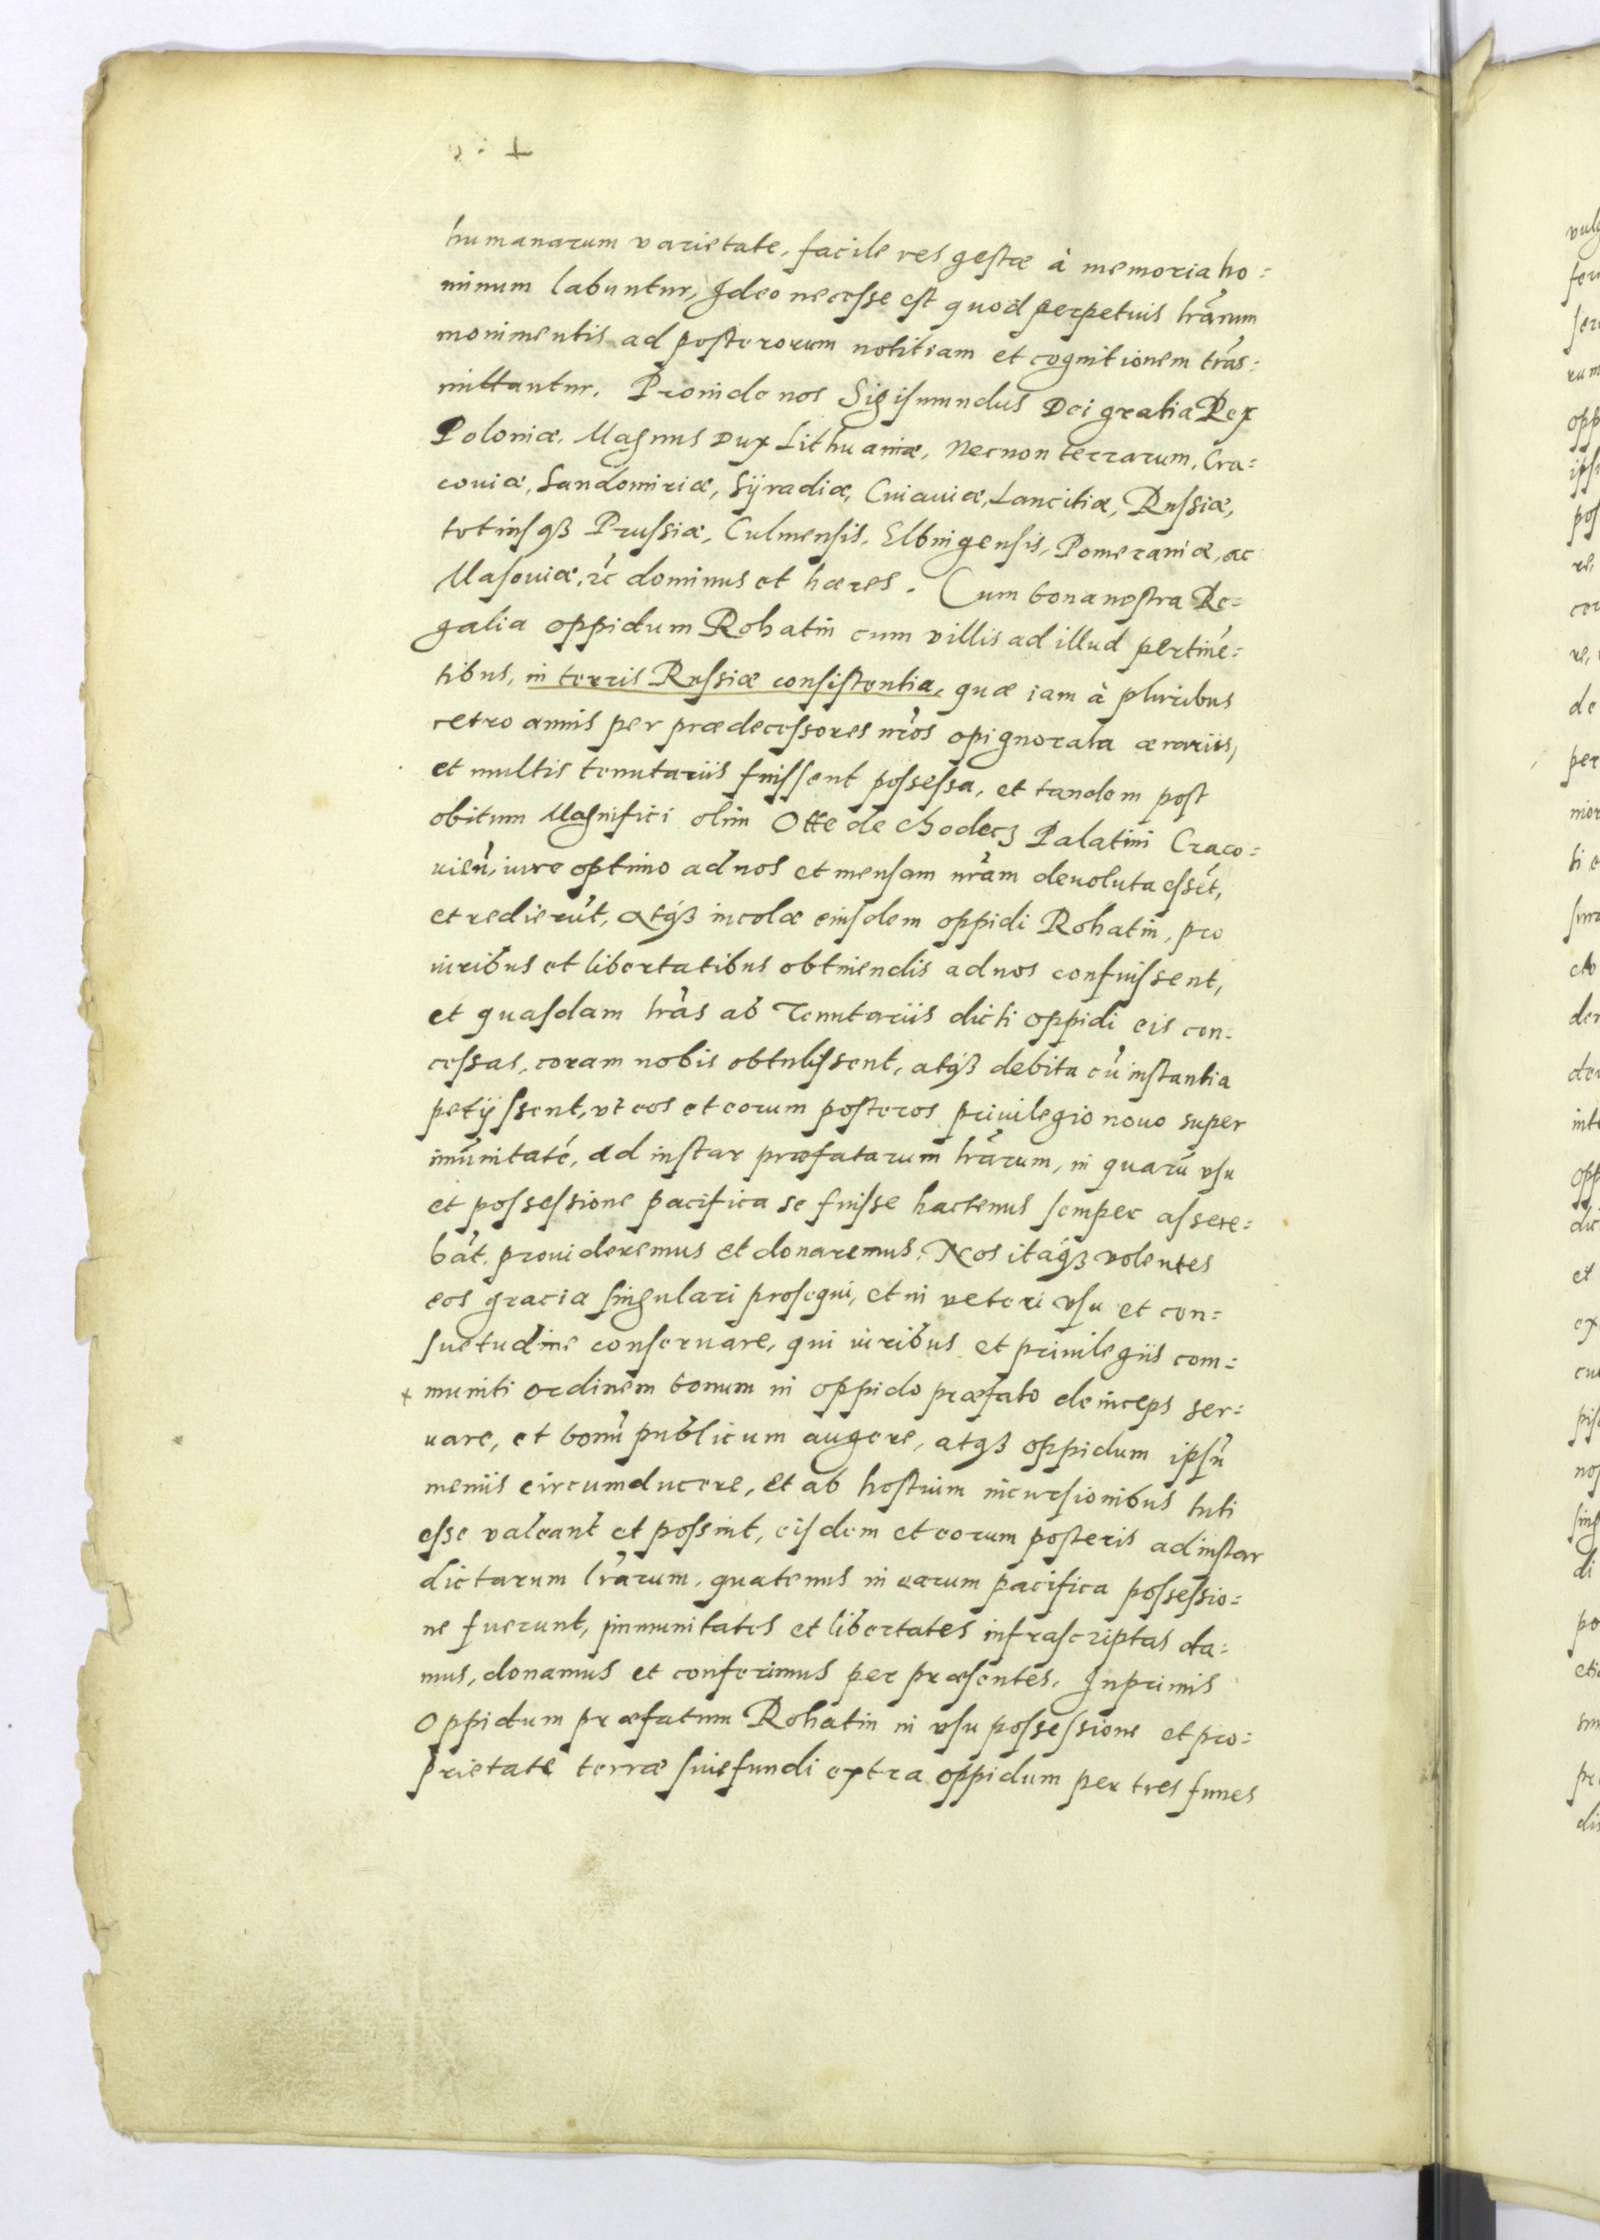 humanarum varietate, facile res gestæ à memoria ho=
minum labuntur, Ideo necesse est quod perpetuis lr̃arum
monimentis ad posterorum notitiam et cognitionem trãs=
mittantur. Proinde nos Sigismundus Dei gratia Rex
Poloniæ, Magnus Dux Lithuaniæ, Necnon terrarum, Cra=
couiæ, Sandomiriæ, Sÿradiæ, Cuiauiæ, Lancitiæ, Russiæ,
totiusqꝫ Prussiæ, Culmensis, Elbingensis, Pomeraniæ, ac
Masouiæ, &c̃ dominus et hæres. Cum bona nostra Re=
galia oppidum Rohatin cum villis ad illud pertinẽ=
tibus, in terris Russiæ consistentia, quæ iam à pluribus
retro annis per prædecessores nr̃os opignorata ærariis,
et multis tenutariis fuissent possessa, et tandem post
obitum Magnifici olim Otte de chodecz Palatini Craco=
uieñ, iure optimo ad nos et mensam nr̃am deuoluta essẽt,
et redierũt, atqꝫ incolæ eiusdem oppidi Rohatin, pro
iuribus et libertatibus obtinendis ad nos confuissent,
et quasdam lr̃as ab Tenutariis dicti oppidi eis con=
cessas, coram nobis obtulissent, atqꝫ debita cũ instantia
petÿssent, vt eos et eorum posteros priuilegio nouo super
im̃unitatẽ, ad instar præfatarum lr̃arum, in quarũ vsu
et possessione pacifica se fuisse hactenus semper assere=
bãt, prouideremus et donaremus. Nos itaqꝫ volentes
eos gracia singulari prosequi, et in veteri vsu et con=
suetudine conseruare, qui iuribus et priuilegiis com=
+ muniti ordinem bonum in oppido præfato deinceps ser=
uare, et bonũ publicum augere, atqꝫ oppidum ipsũ
meniis circumducere, et ab hostium incursionibus tuti
esse valeant et possint, eisdem et eorum posteris ad instar
dictarum lr̃arum, quatenus in earum pacifica possessio=
ne fuerunt, immunitates et libertates infrascriptas da=
mus, donamus et conferimus per præsentes. Inprimis
Oppidum præfatum Rohatin in vsu possessione et pro=
prietate terræ siue fundi extra oppidum per tres funes